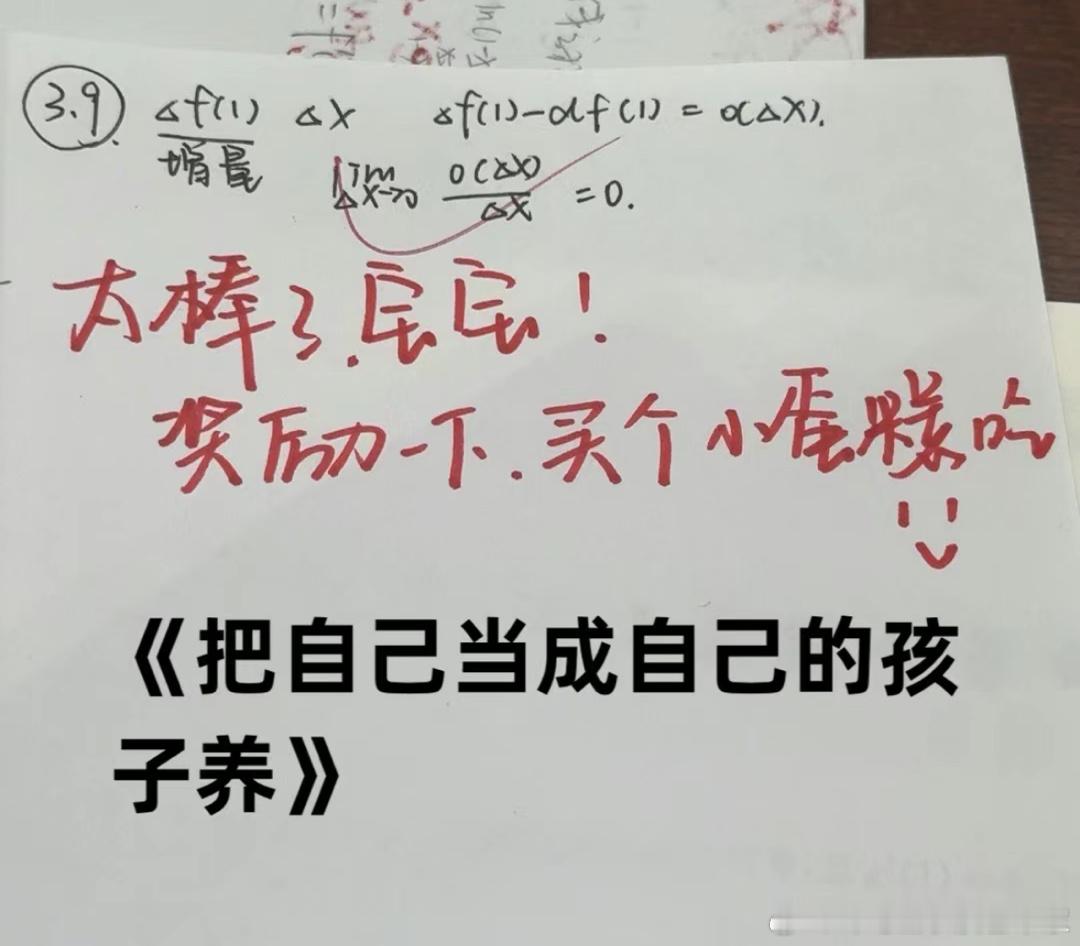 3.9 Δf(1) Δx Δf(1)-df(1)=o(Δx).
增量 lim Δx→0 o(Δx)/Δx =0.
太棒了.宝宝!
奖励一下.买个小蛋糕吃
《把自己当成自己的孩
子养》